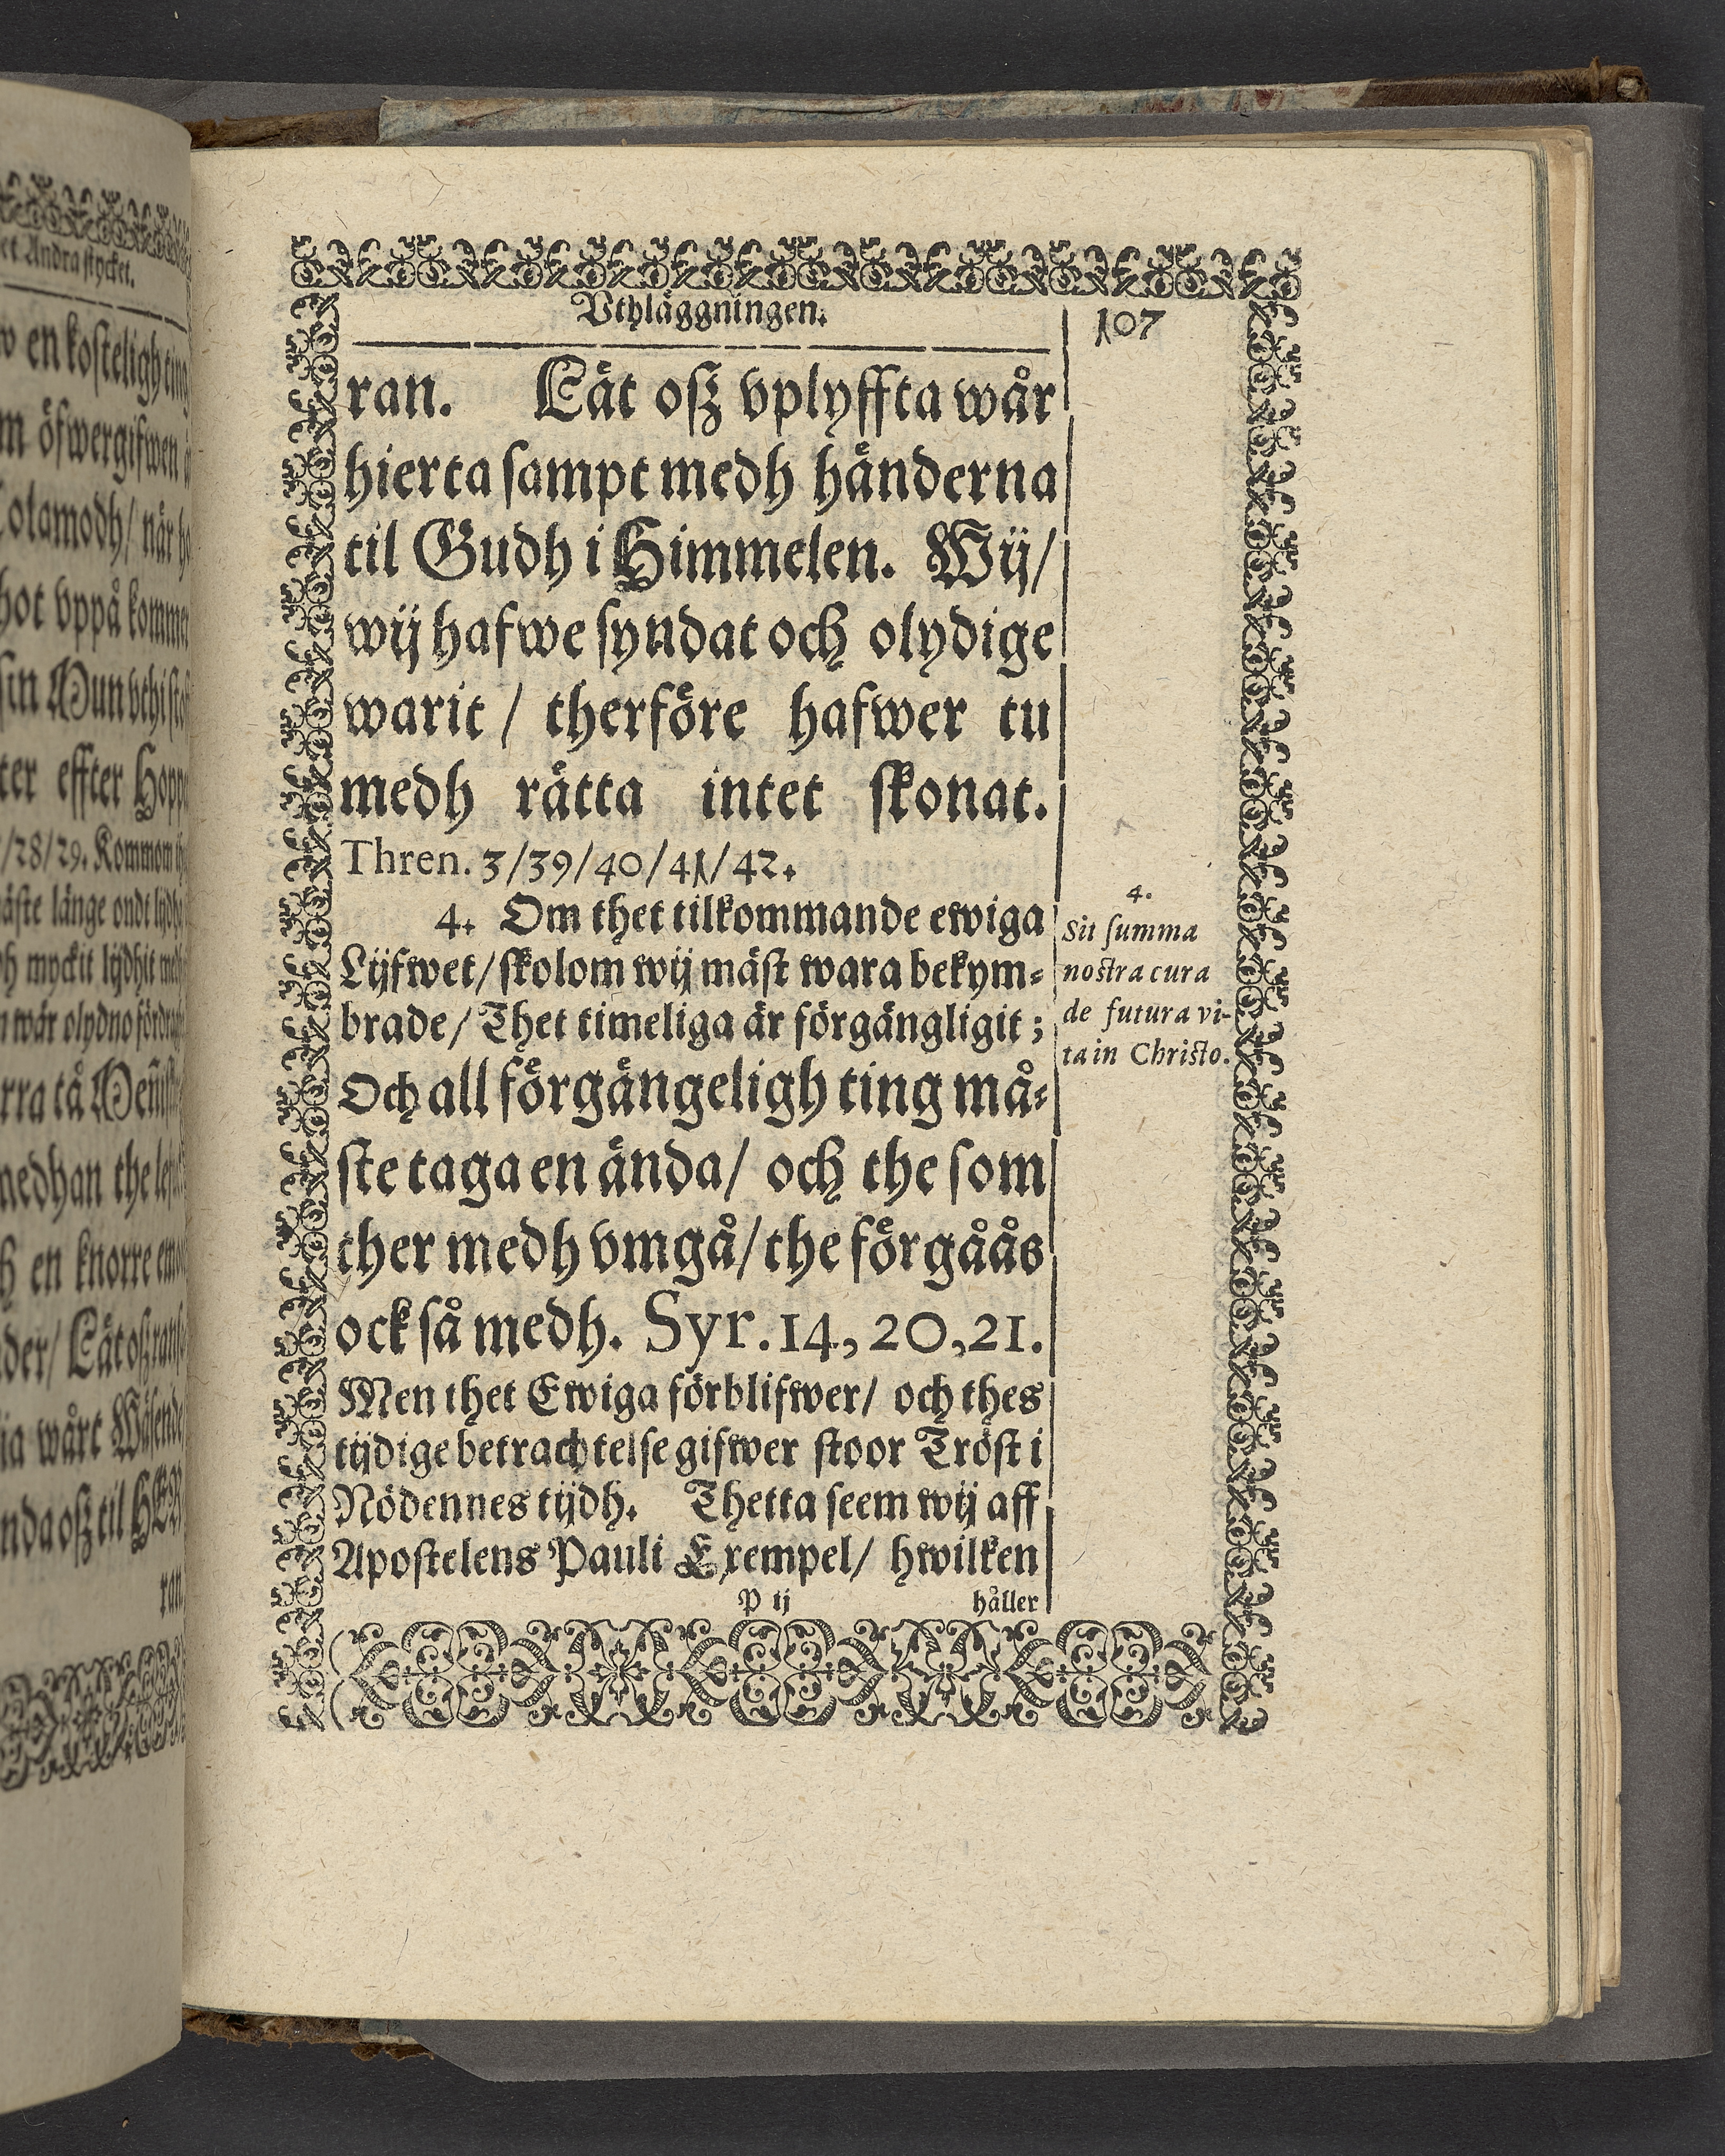 et Andra stycket.
en kosteligh ting
öfwergifwen
når
vppå
sin Mun
ter effter
/28/29.
länge ondt
myckit lijdhit
wår olydno
medhan the
en knorre
wårt
oß til
ran.
Vthläggningen.
107
ran. Lät oß vplyffta wår
hierta sampt medh händerna
til Gudh i Himmelen. Wij/
wij hafwe syndat och olydige
warit / therföre hafwer tu
medh rätta intet skonat.
Thren. 3/39/40/41/42.
4. Om thet tilkommande ewiga
Lijfwet/ skolom wij mäst wara bekym-
brade/ Thet timeliga är förgängligit ;
Och all förgängeligh ting må-
ste taga en ända/ och the som
ther medh vmgå/ the förgåås
ock så medh. Syr. 14, 20, 21.
Men thet Ewiga förblifwer/ och thes
tijdige betrachtelse gifwer stoor Tröst i
Nödennes tijdh. Thetta seem wij aff
Apostelens Pauli Exempel/ hwilken
P ij
håller
4.
Sit summa
nostra cura
de futura vi-
ta in Christo.